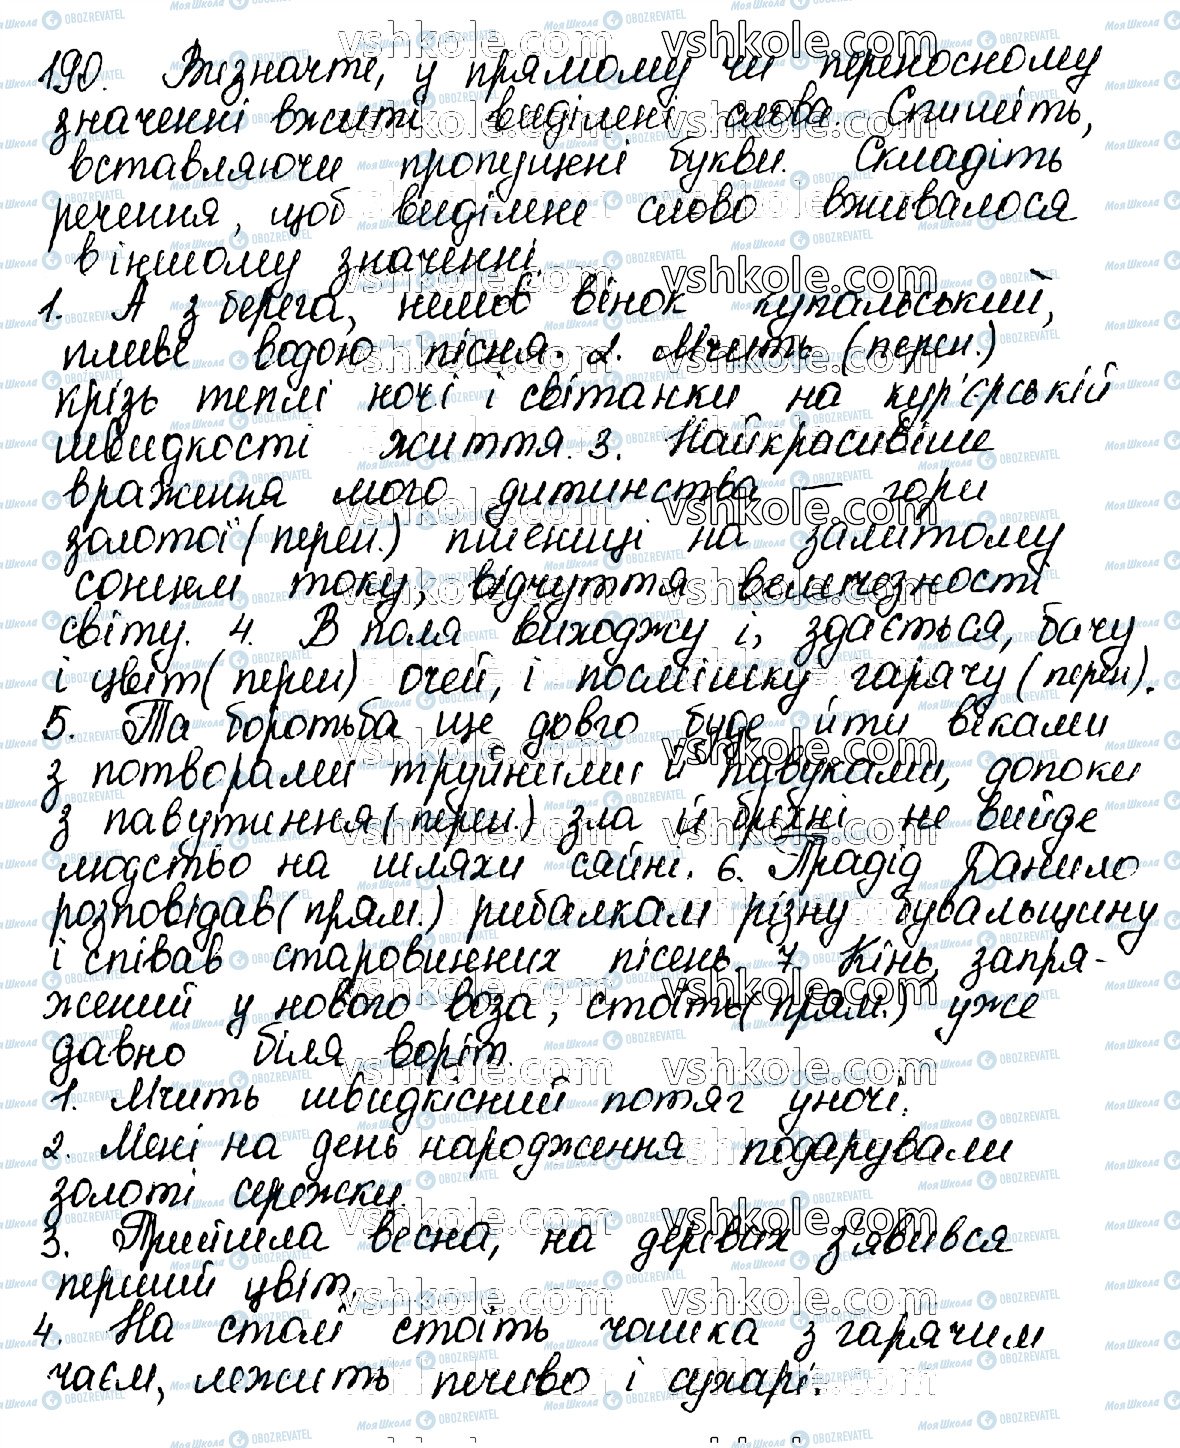 190. Визначте, у прямому чи переносному
значенні вжиті виділені слова. Спишіть,
вставляючи пропущені букви. Складіть
речення, щоб виділене слово вживалося
в іншому значенні
1. А з берега, немов вінок купальський,
пливе водою пісня. 2. Мчить (перен.)
крізь теплі ночі і світанки на кур'єрській
швидкості життя. 3. Найкрасивіше
враження мого дитинства — гори
золотої (перен.) пшениці на залитому
сонцем току, відчуття величезності
світу. 4. В поля виходжу і, здається, бачу
і цвіт (перен) очей, і посмішку гарячу (перен).
5. Та боротьба ще довго буде йти віками
з потворами труйними й павуками, допоки
з павутиння (перен.) зла й брихні не вийде
людство на шляхи сяйні. 6. Прадід Данило
розповідав (прям.) рибалкам різну бувальщину
і співав старовинних пісень. 7. Кінь, запря-
жений у нового воза, стоїть (прям.) уже
давно біля воріт.
1. Мчить швидкісний потяг уночі.
2. Мені на день народження подарували
золоті сережки.
3. Прийшла весна, на деревах з'явився
перший цвіт.
4. На столі стоїть чашка з гарячим
чаєм, лежить печиво і сухарі.